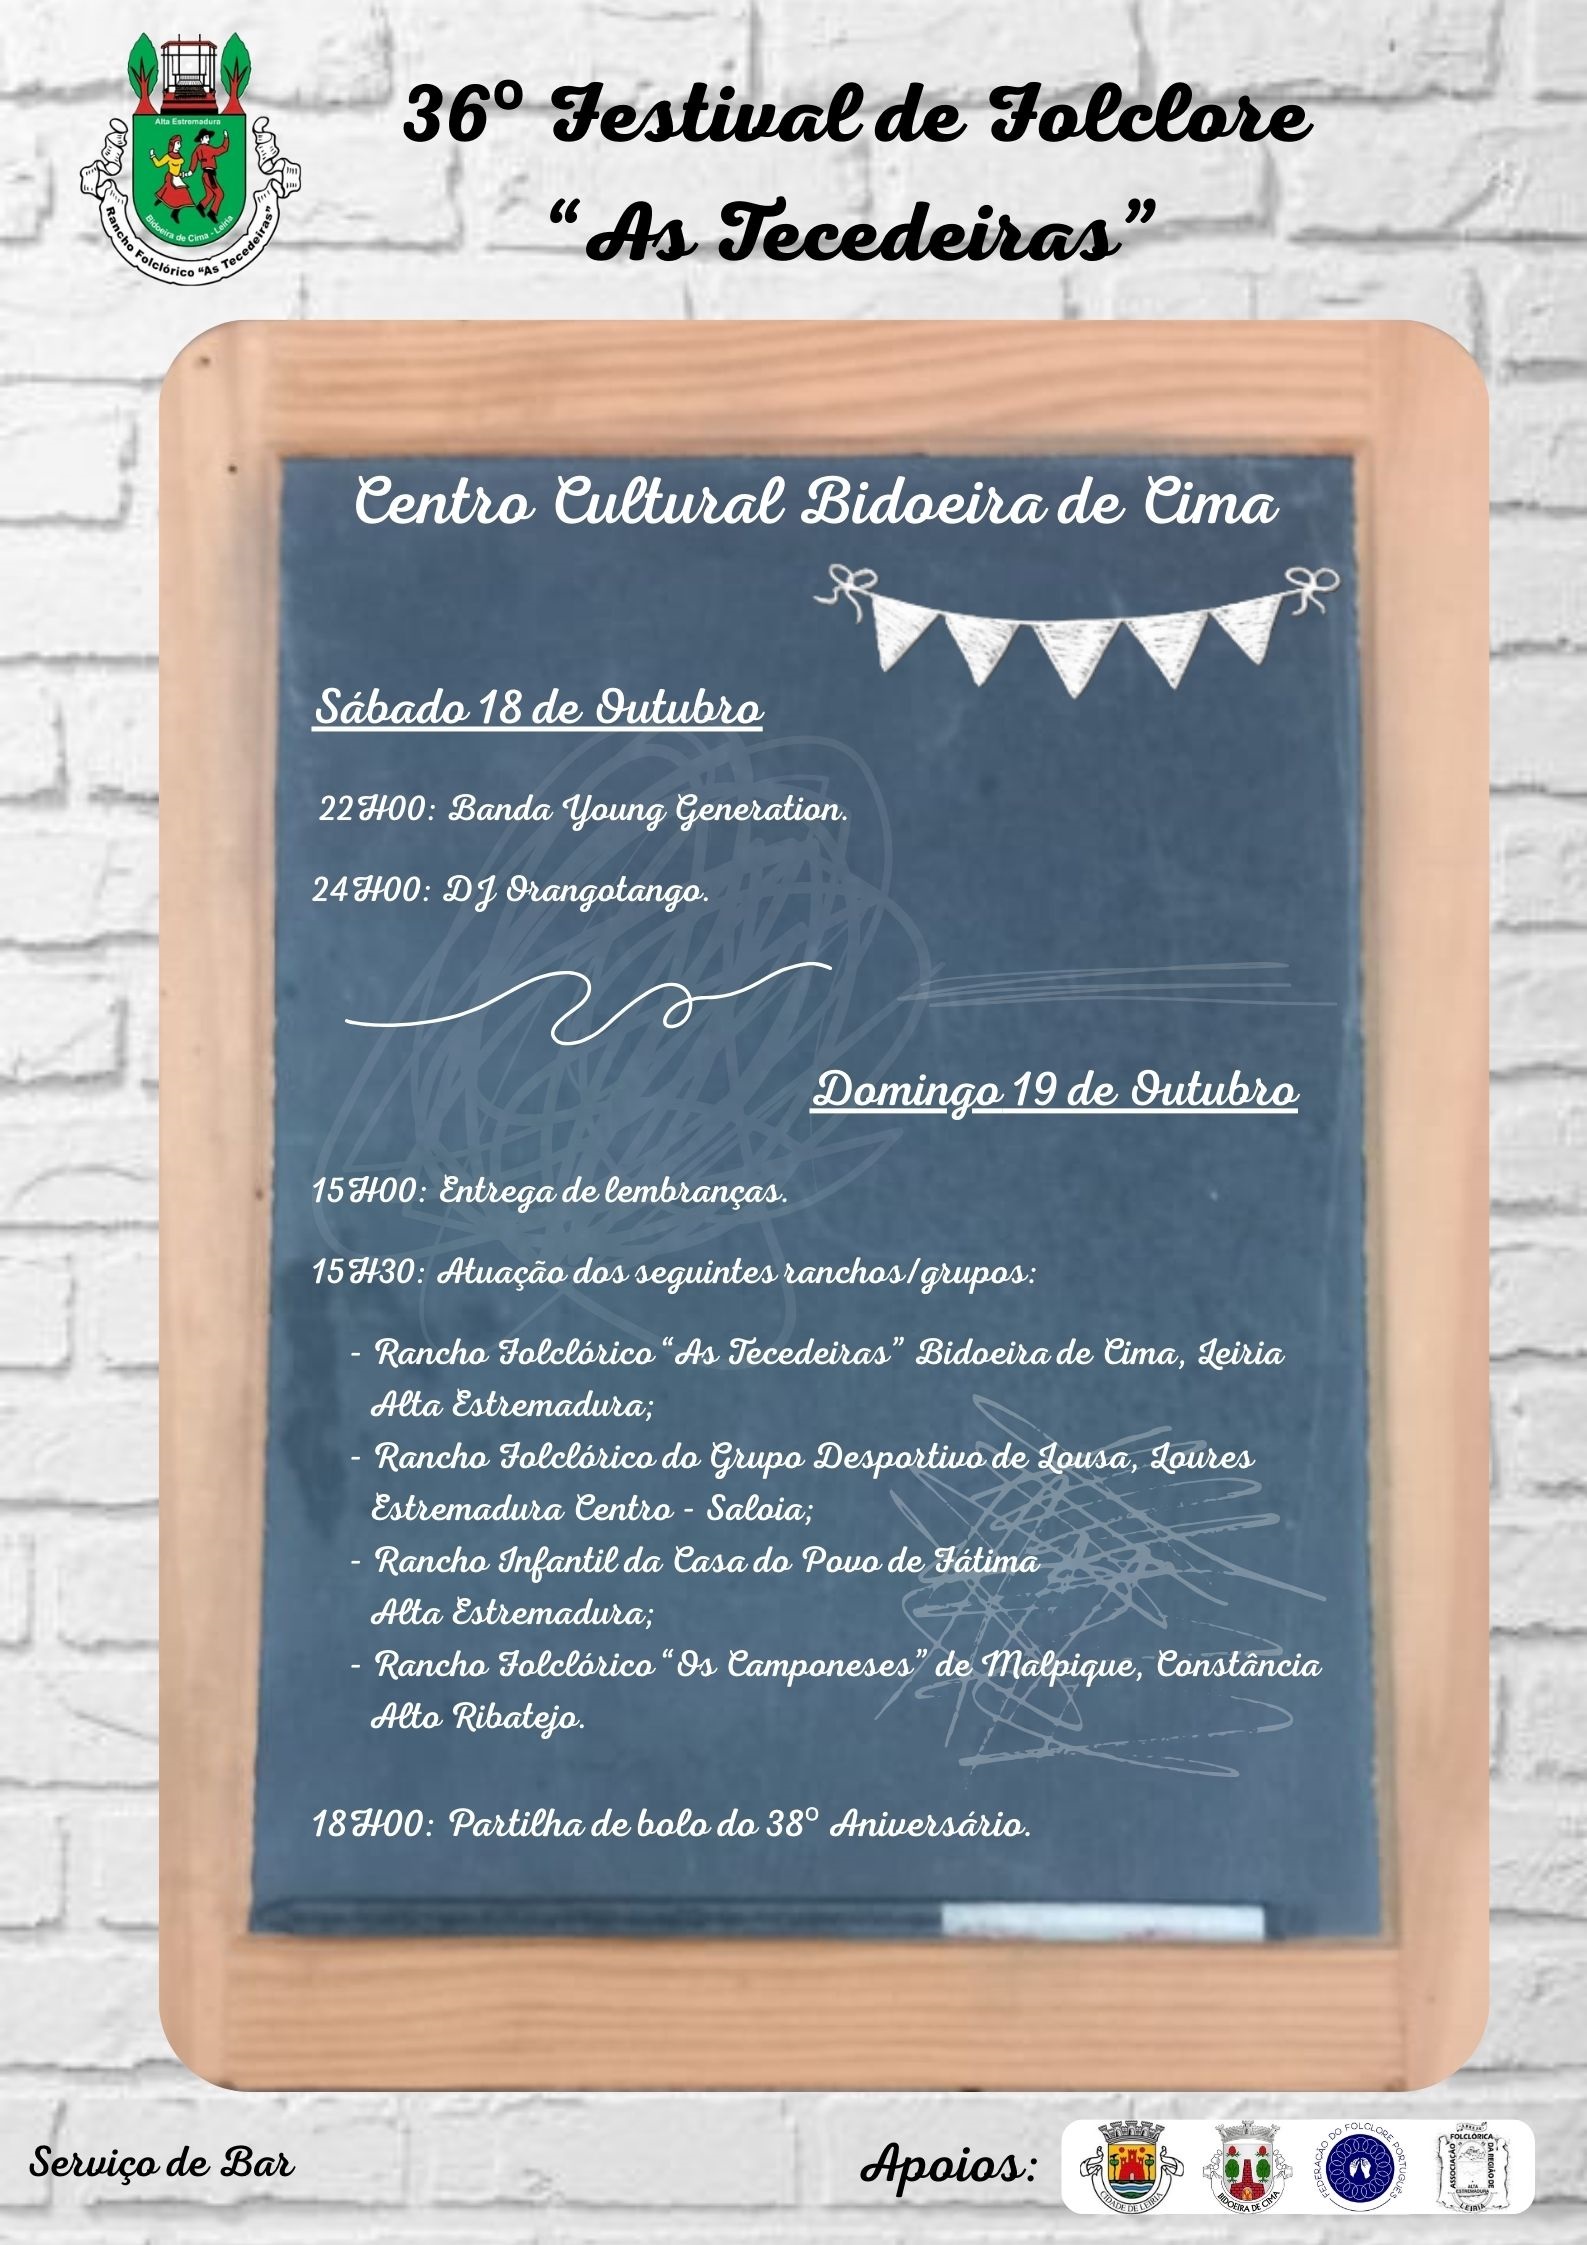 Alta Estremadura
Bidoeira de Cima - Leiria
Rancho Folclórico "As Tecedeiras"
36º Festival de Folclore
“As Tecedeiras”
Centro Cultural Bidoeira de Cima
Sábado 18 de Outubro
22H00: Banda Young Generation.
24H00: DJ Orangotango.
Domingo 19 de Outubro
15H00: Entrega de lembranças.
15H30: Atuação dos seguintes ranchos/grupos:
- Rancho Folclórico “As Tecedeiras” Bidoeira de Cima, Leiria
Alta Estremadura;
- Rancho Folclórico do Grupo Desportivo de Lousa, Loures
Estremadura Centro - Saloia;
- Rancho Infantil da Casa do Povo de Fátima
Alta Estremadura;
- Rancho Folclórico “Os Camponeses” de Malpique, Constância
Alto Ribatejo.
18H00: Partilha de bolo do 38º Aniversário.
Serviço de Bar
Apoios:
CIDADE DE LEIRIA
BIDOEIRA DE CIMA
FEDERAÇÃO DO FOLCLORE PORTUGUÊS
ASSOCIAÇÃO FOLCLÓRICA DA REGIÃO DE LEIRIA
ALTA ESTREMADURA